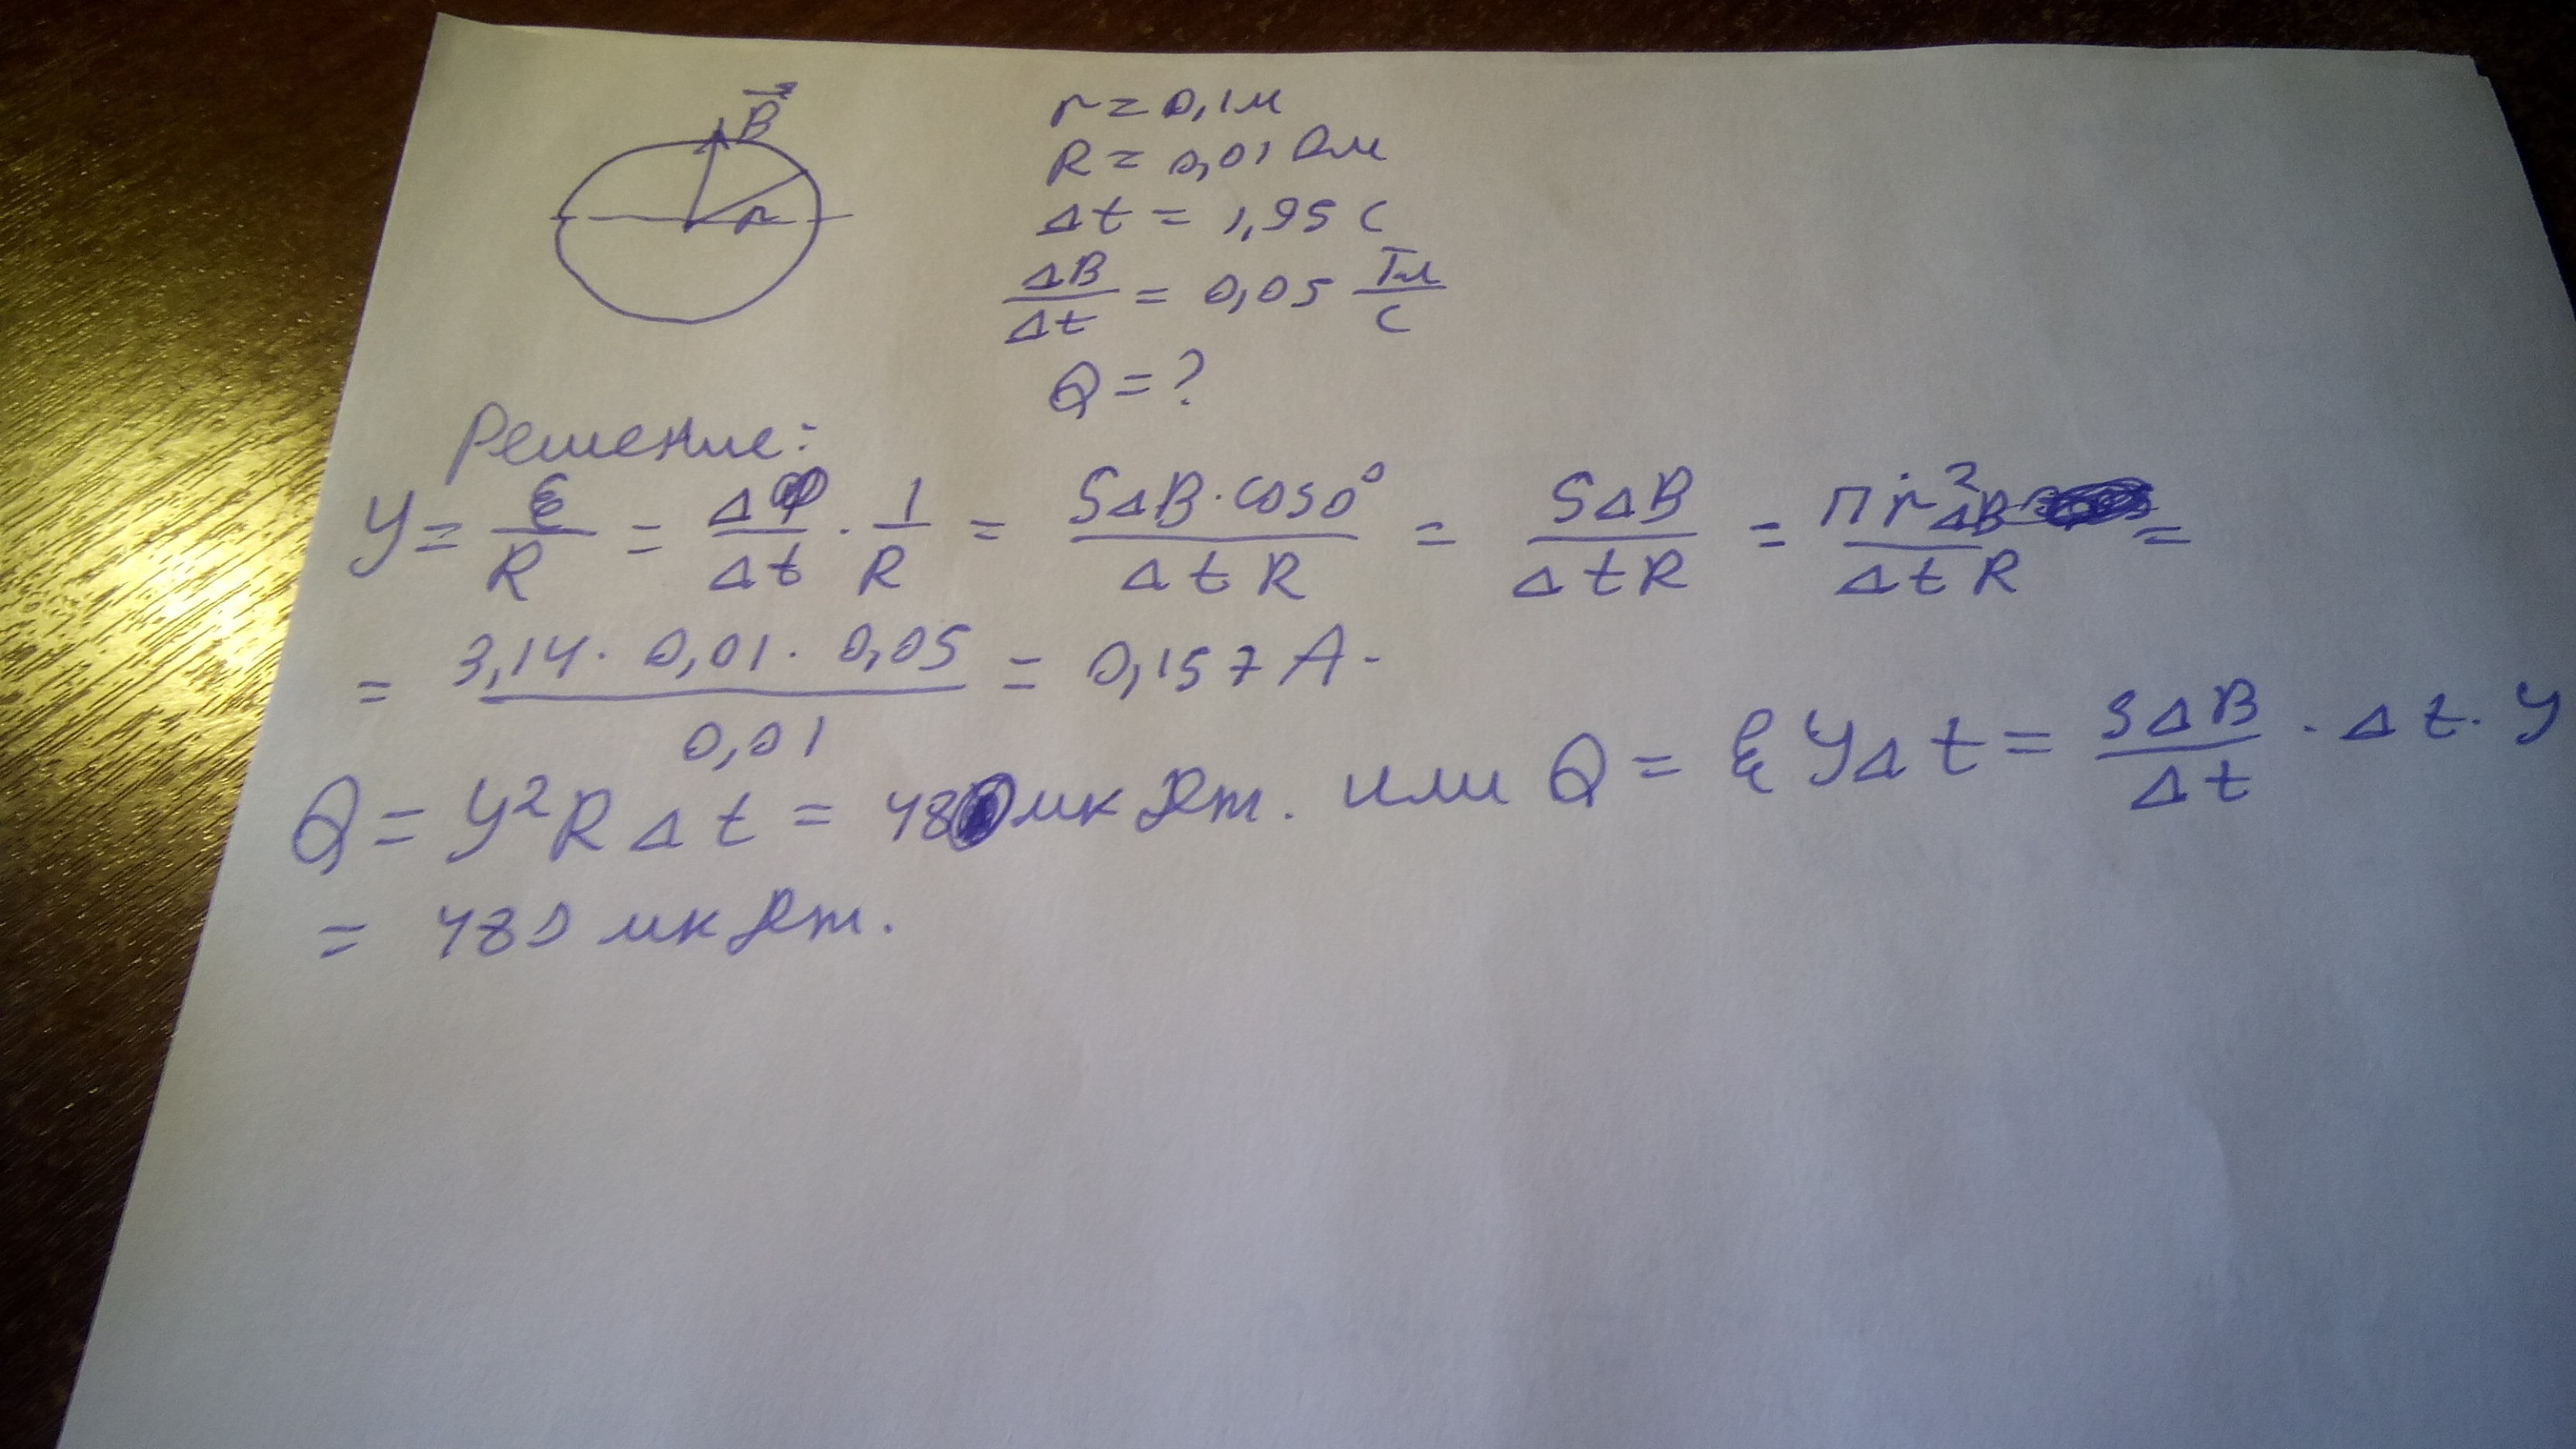 B⃗
r
r = 0,1 м
R = 0,01 Ом
Δt = 1,95 с
ΔB/Δt = 0,05 Тл/с
Q = ?
Решение:
У = ℰ/R = ΔФ/Δt · 1/R = SΔB·cos0°/ΔtR = SΔB/ΔtR = πr²ΔB/ΔtR =
= 3,14 · 0,01 · 0,05/0,01 = 0,157 А.
Q = У²RΔt = 480 мк Дж. или Q = ℰУΔt = SΔB/Δt · Δt · У
= 480 мк Дж.